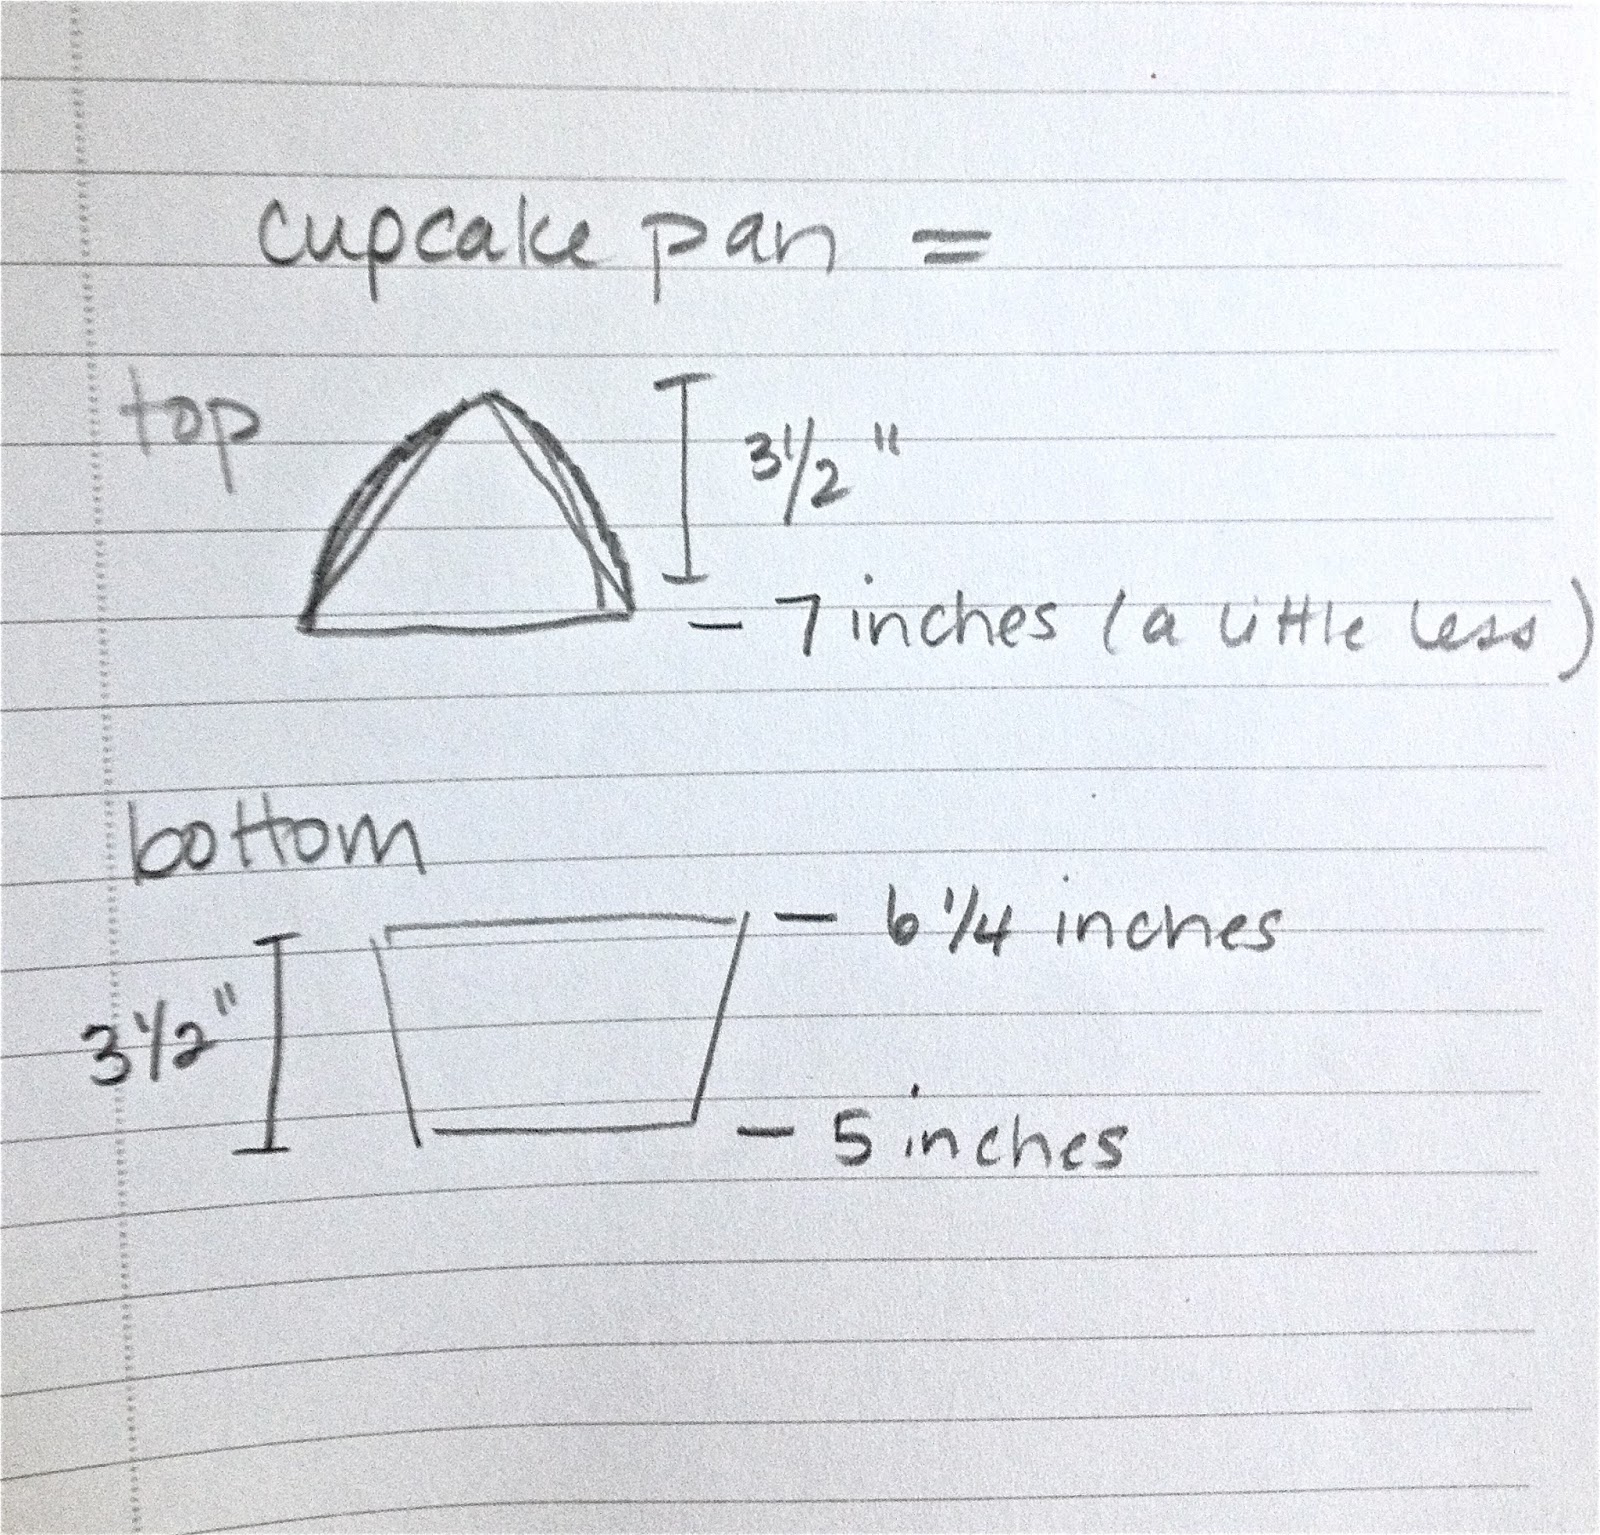 cupcake pan =
top
3 1/2 "
- 7 inches (a little less)
bottom
- 6 1/4 inches
3 1/2 "
- 5 inches